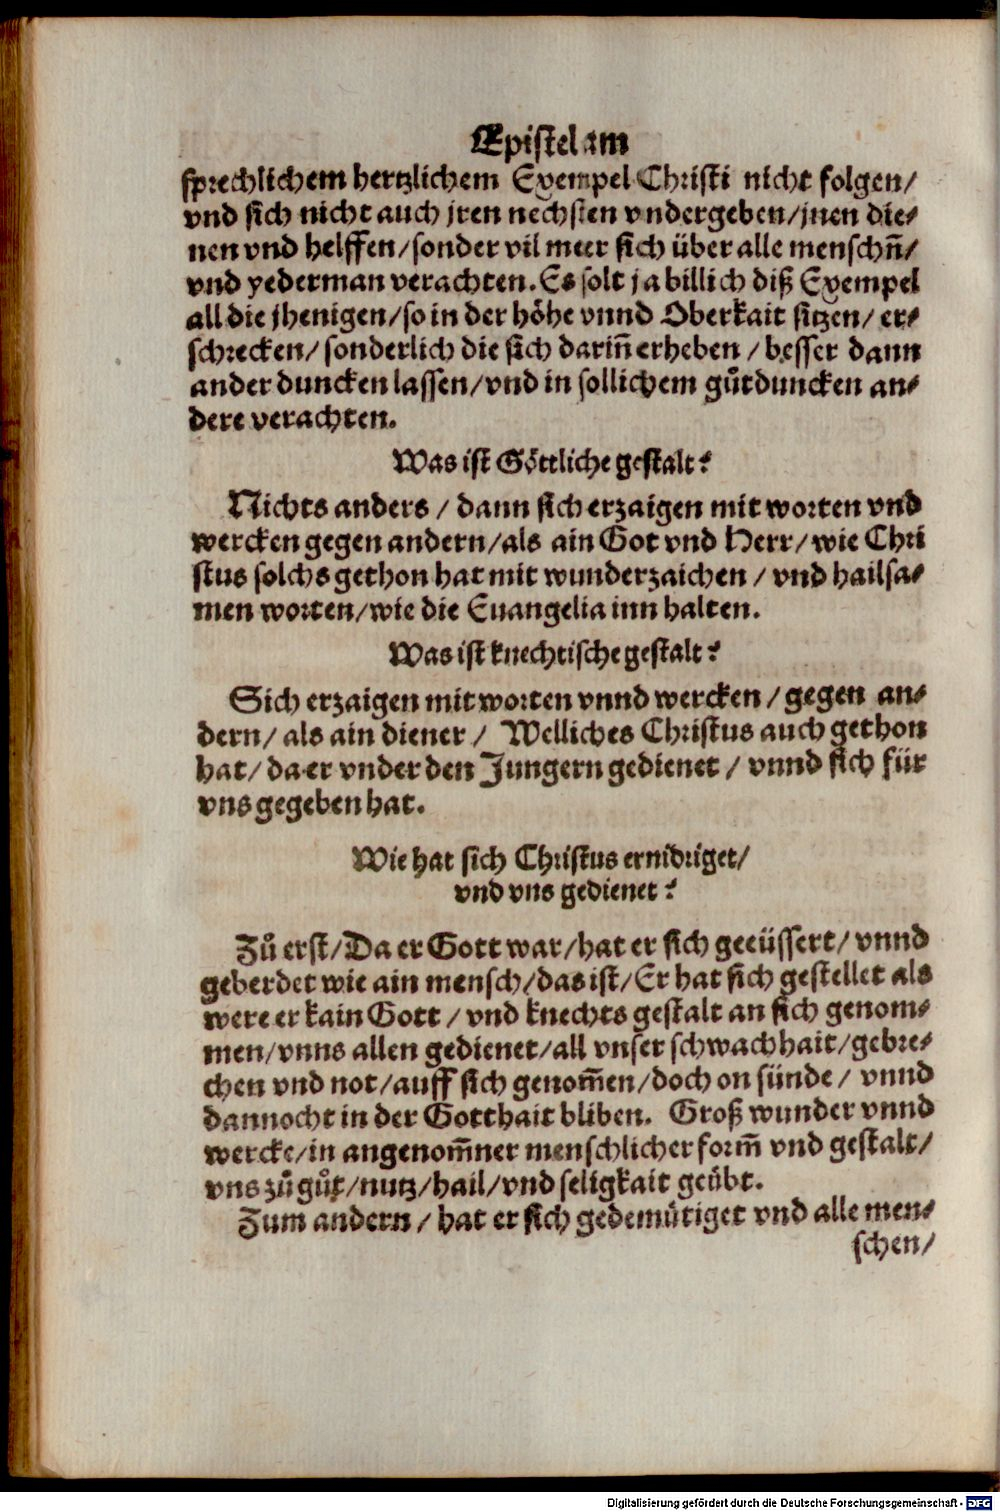 Epistel am
sprechlichem hertzlichem Exempel Christi nicht folgen/
vnd sich nicht auch jren nechsten vndergeben/jnen die⸗
nen vnd helffen/sonder vil meer sich über alle menschñ/
vnd yederman verachten. Es solt ja billich diß Exempel
all die jhenigen/so in der höhe vnnd Oberkait sitzen/ er⸗
schrecken/ sonderlich die sich dariñ erheben / besser dann
ander duncken lassen/vnd in sollichem gůtduncken an⸗
dere verachten.
Was ist Göttliche gestalt?
Nichts anders / dann sich erzaigen mit worten vnd
wercken gegen andern/als ain Got vnd Herr/ wie Chri
stus solchs gethon hat mit wunderzaichen / vnd hailsa⸗
men worten/wie die Euangelia inn halten.
Was ist knechtische gestalt?
Sich erzaigen mit worten vnnd wercken / gegen an⸗
dern/ als ain diener / Welliches Christus auch gethon
hat/ da er vnder den Jungern gedienet / vnnd sich für
vns gegeben hat.
Wie hat sich Christus ernidriget/
vnd vns gedienet?
Zů erst/Da er Gott war/hat er sich geeüssert/ vnnd
geberdet wie ain mensch/das ist/Er hat sich gestellet als
were er kain Gott / vnd knechts gestalt an sich genom⸗
men/vnns allen gedienet/all vnser schwachhait/gebre⸗
chen vnd not/auff sich genom̃en/doch on sünde/ vnnd
dannocht in der Gotthait bliben. Groß wunder vnnd
wercke/in angenom̃ner menschlicher form̃ vnd gestalt/
vns zů gůt/nutz/hail/vnd seligkait geübt.
Zum andern / hat er sich gedemütiget vnd alle men⸗
schen/
Digitalisierung gefördert durch die Deutsche Forschungsgemeinschaft - DFG